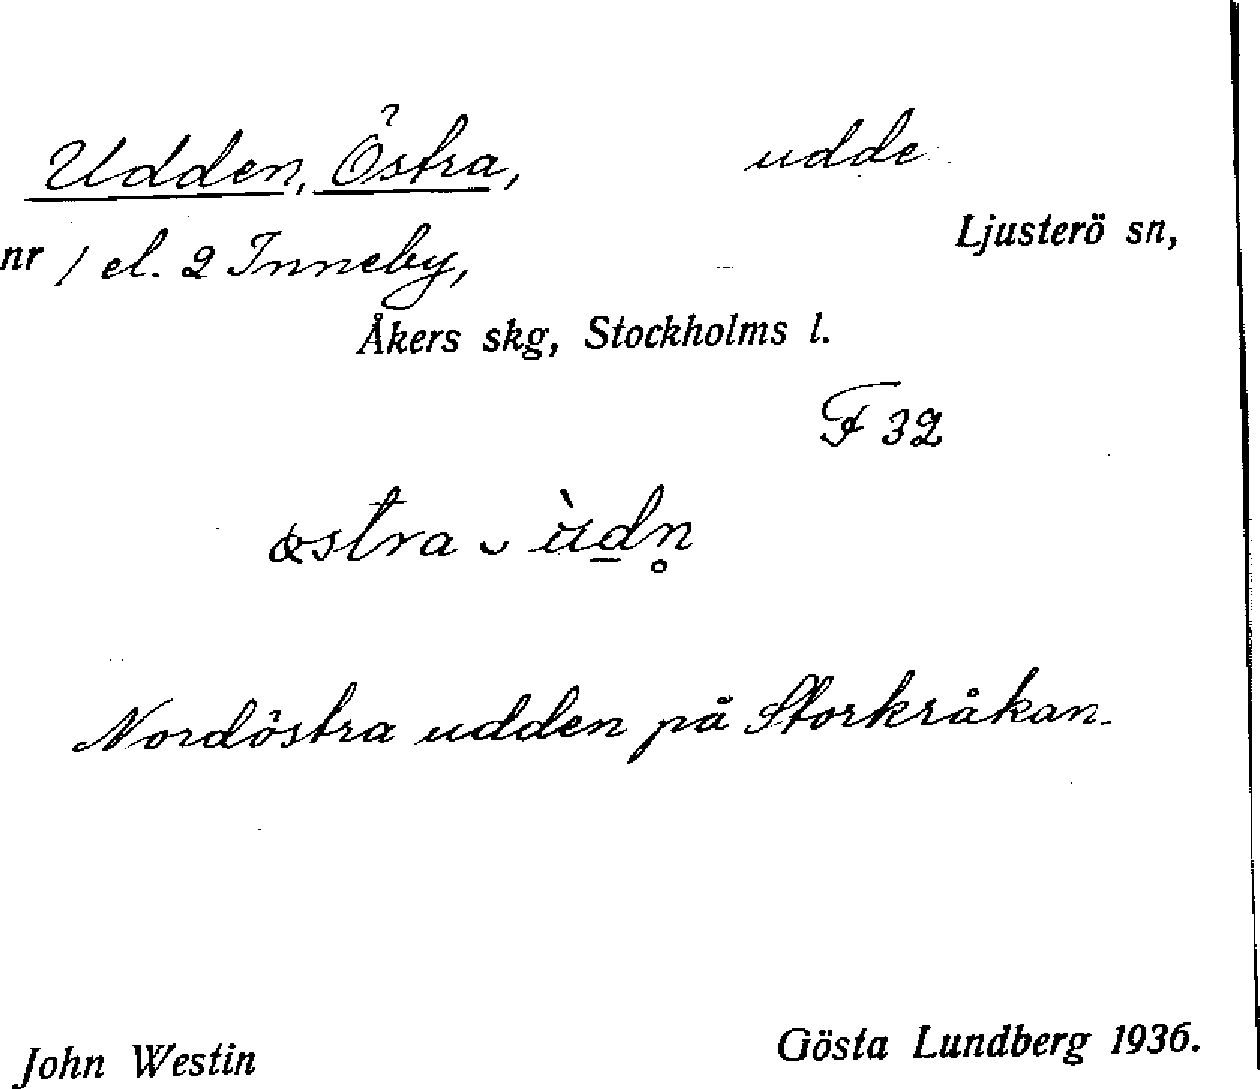 Udden, Östra, udde.
nr 1 el. 2 Inneby, Ljusterö sn,
Åkers skg, Stockholms l.
F 32
östra ᴗ ùd̲n̥
Nordöstra udden på Storkråkan.
John Westin Gösta Lundberg 1936.